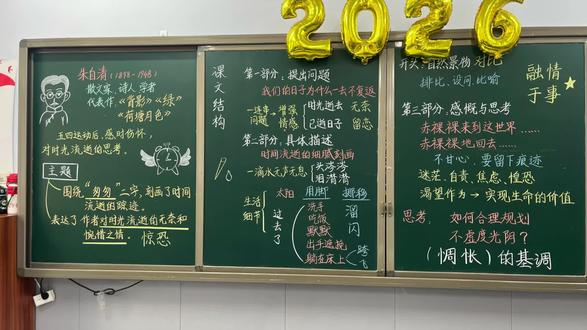 2026
朱自清(1898-1948)
散文家、诗人、学者
代表作:《背影》《绿》
《荷塘月色》
五四运动后,感时伤怀,
对时光流逝的思考。
主题
围绕“匆匆”二字,刻画了时间
流逝的踪迹。
表达了作者对时光流逝的无奈和
惋惜之情。 惊恐
课文结构
第一部分:提出问题
我们的日子为什么一去不复返
一连串问题 增强情感 时光逝去 无奈
已逝日子 留恋
第二部分:具体描述
时间流逝的细腻刻画
一滴水无声无息 头涔涔
泪潸潸
生活细节
太阳 用脚 挪移
过去了
洗手 溜
吃饭 闪
默默
出手遮挽 跨
躺在床上 飞
开头:自然景物 对比
排比、设问、比喻
融情于事
第三部分:感慨与思考
赤裸裸来到这世界……
赤裸裸地回去……
不甘心,要留下痕迹
迷茫、自责、焦虑、惶恐
渴望作为→实现生命的价值
思考: 如何合理规划
不虚度光阴?
(惆怅)的基调